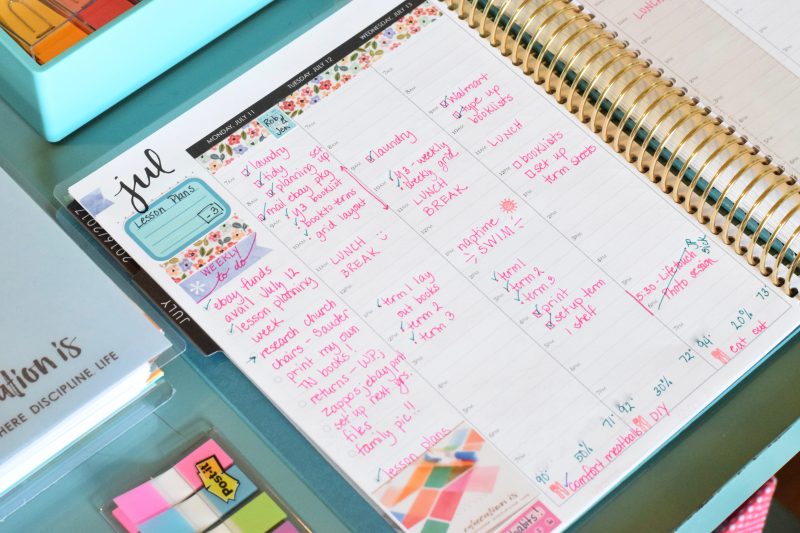 jul
2016/2017
JULY
Lesson Plans
-3
WEEKLY
to do
ebay funds
avail July 12
lesson planning
week-
research church
chairs - Sauder
print my own
TN books
returns - UP,
zappos, ebay
set up next yr.
files
family pic!!
lesson plans
MONDAY, JULY 11
Rob &
Jen
laundry
tidy set
planning up
mail ebay pkg
y3 booklist
books-terms
grid layout
LUNCH
BREAK
term 1 lay
out books
term 2
term 3
education is
habits!
90° 50% 71°
comfort meatballs
TUESDAY, JULY 12
laundry
y3 - weekly
weekly grid
LUNCH
BREAK
naptime
SWIM
term 1
term 2
term 3
print
set up term
1 shelf
92° 30% 72°
DIY
WEDNESDAY, JULY 13
Walmart
type up
booklists
LUNCH
booklists
set up
term sheets
sick
5:30 - Lifetouch
photo session
94° 20% 73°
eat out
LUNCH
ation is
HERE DISCIPLINE LIFE
Post-it